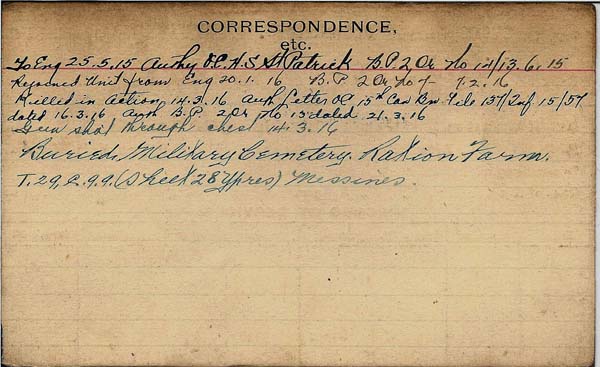 CORRESPONDENCE,
etc.
To Eng 25.5.15 Authy O.C. H.S. St Patrick B.P. 2 Or No 14/13.6.15
Rejoined Unit from Eng 20.1.16 B.P. 2 Or No 7 7.2.16
Killed in Action 14.3.16 Auth Letter OC, 15th Can Bn File 137/Inf 15/57
dated 16.3.16 Auth B.P. 2 Or No 13 dated 21.3.16
Gun shot through chest 14.3.16
Buried, Military Cemetery. Ration Farm.
T.29.C.9.9. (Sheet 28 Ypres) Messines.